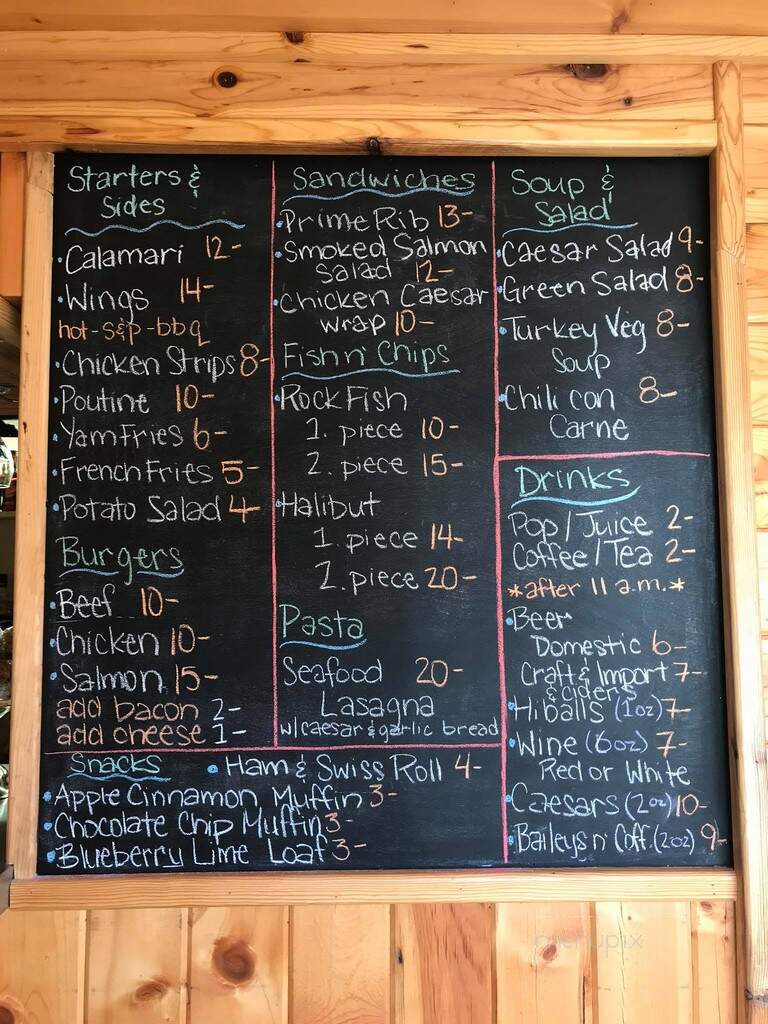 Starters &
Sides
Calamari 12-
Wings 14-
hot-s&p-bbq
Chicken Strips 8-
Poutine 10-
Yam Fries 6-
French Fries 5-
Potato Salad 4-
Burgers
Beef 10-
Chicken 10-
Salmon 15-
add bacon 2-
add cheese 1-
Sandwiches
Prime Rib 13-
Smoked Salmon
Salad 12-
Chicken Caesar
wrap 10-
Fish n' Chips
Rock Fish
1. piece 10-
2. piece 15-
Halibut
1. piece 14-
2. piece 20-
Pasta
Seafood 20-
Lasagna
w/caesar & garlic bread
Soup &
Salad
Caesar Salad 9-
Green Salad 8-
Turkey Veg 8-
Soup
Chili con 8-
Carne
Drinks
Pop/Juice 2-
Coffee/Tea 2-
*after 11 a.m.*
Beer
Domestic 6-
Craft & Import 7-
& ciders
Hiballs (1oz) 7-
Wine (6oz) 7-
Red or White
Caesars (2oz) 10-
Baileys n' Coff. (2oz) 9-
Snacks
Ham & Swiss Roll 4-
Apple Cinnamon Muffin 3-
Chocolate Chip Muffin 3-
Blueberry Lime Loaf 3-
menupix